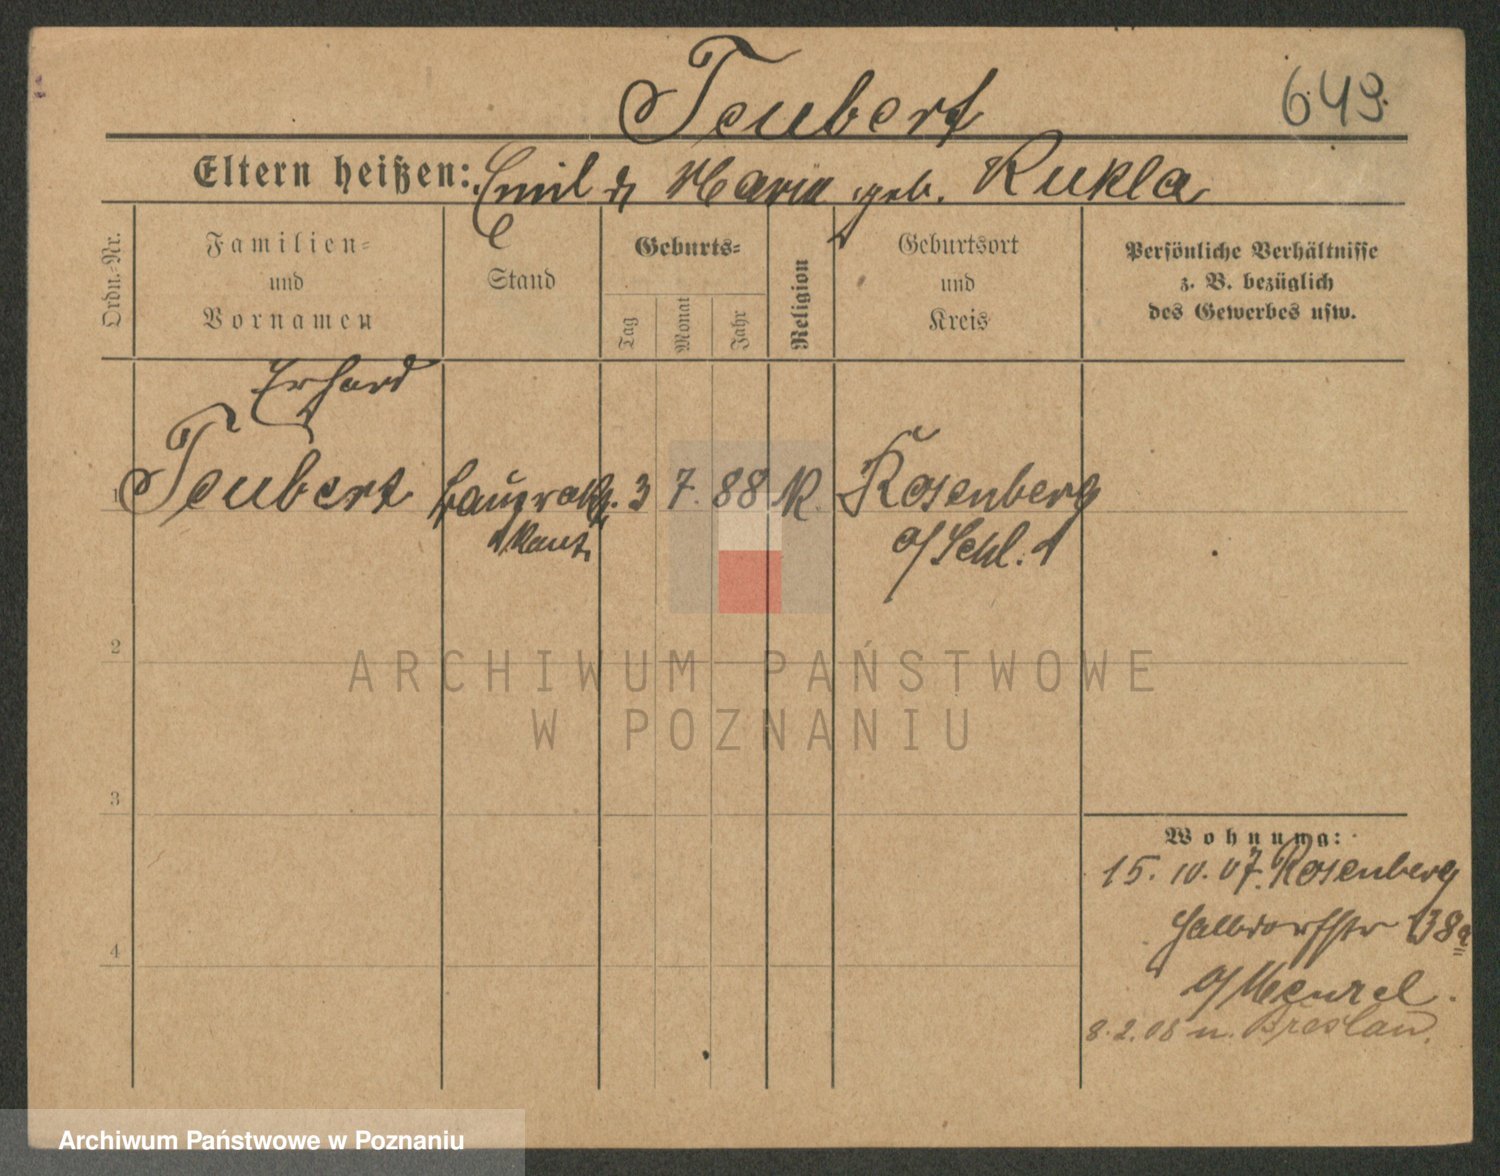 Teubert
649.
Eltern heißen: Emil & Maria geb. Kukla
Ordn.-Nr.
Familien-
und
Vornamen
Stand
Geburts-
Tag
Monat
Jahr
Religion
Geburtsort
und
Kreis
Persönliche Verhältnisse
z. B. bezüglich
des Gewerbes usw.
Erhard
1
Teubert
3 7. 88 K. Rosenberg
o/Schl.
2
3
4
Wohnung:
15. 10. 07. Rosenberg
Halbdorfstr 38a
o/Menzel.
8.2.08 n. Breslau.
ARCHIWUM PAŃSTWOWE
W POZNANIU
Archiwum Państwowe w Poznaniu